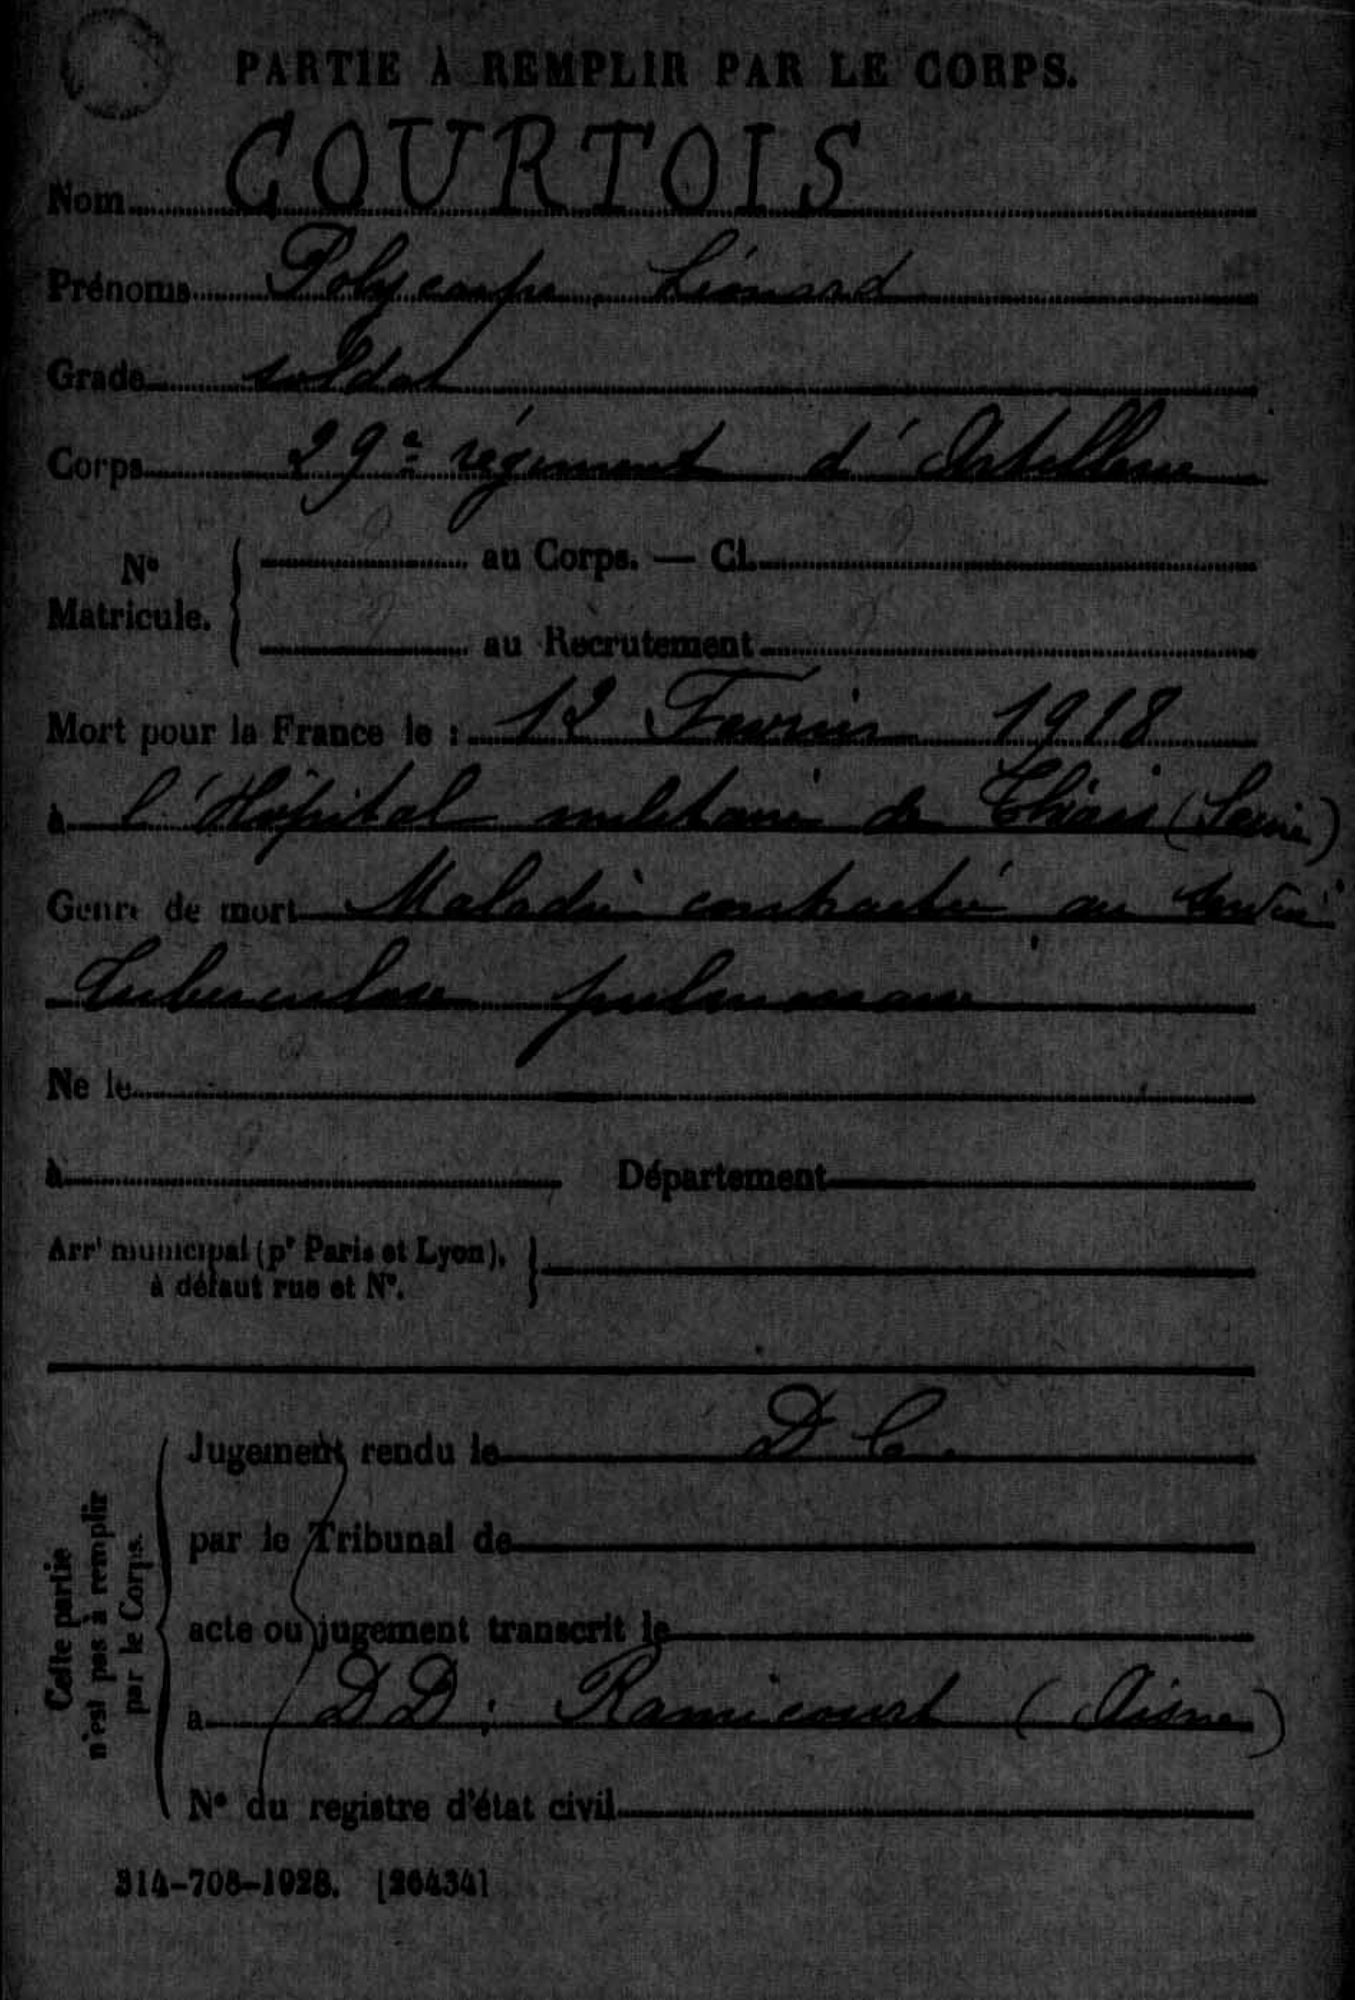 PARTIE À REMPLIR PAR LE CORPS.
Nom COURTOIS
Prénoms Polycarpe Léonard
Grade soldat
Corps 29e régiment d'Artillerie
No Matricule. { au Corps. — Cl.
au Recrutement
Mort pour la France le : 12 Fevrier 1918
à l'Hôpital militaire de Thiais (Seine)
Genre de mort Maladie contractée au service
Tuberculose pulmonaire
Né le
à Département
Arrt municipal (pr Paris et Lyon),
à défaut rue et No.
Cette partie n'est pas à remplir par le Corps.
Jugement rendu le D C.
par le Tribunal de
acte ou jugement transcrit le
à DD : Ramicourt (Aisne)
No du registre d'état civil
314-708-1928. [26434]